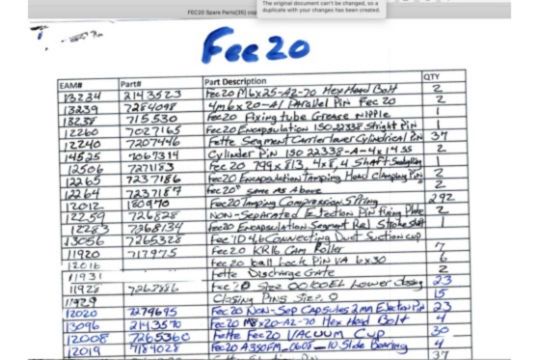 The original document can't be changed, so a
duplicate with your changes has been created.
FEC20 Spare Parts
Fec20
EAM# Part# Part Description QTY
13234 2143523 Fec20 M6x25-A2-70 Hex Head Bolt 2
13239 7284098 4m6x20-A1 Parallel Pin Fec20 2
13238 715530 Fec20 Fixing tube Grease nipple 1
12260 7027165 Fec20 Encapsulation ISO 22338 Stright Pin 1
12240 7207446 Fette Segment Carrier lower Cylindrical Pin 37
14525 Cylinder Pin ISO 22338-A-4x14 SS 2
12506 7271183 Fec20 Shaft 1
12265 7237186 Fec20 Encapsulation Tamping Head Clamping Pin 2
12264 7237187 Fec20" Same as Above 2
12012 180970 Fec20 Tamping Compression Spring 292
12259 726828 Non-Separated Ejection Pin fixing Plate 2
12283 7268134 Fec20 Encapsulation Segment Rel Stroke Shaft 1
13056 7265328 Fec Connecting Duct Suction cup
11920 717975 Fec20 KR16 Cam Roller 7
Fec20 Ball Lock Pin 6x30 6
11931 Fette Discharge Gate 2
11928 Size 00 Lower Closing 23
11929 Closing Pins Size. 0 15
12020 7279695 Fec20 Non-Sep Capsules 2mm Ejection Pin 23
13096 2143570 Fec20 M8x20-A2-70 Hex Head Bolt 4
12008 7265360 Fette Fec20 Vacuum Cup 30
12019 7184021 Fec20 Slide Bearing 4
37